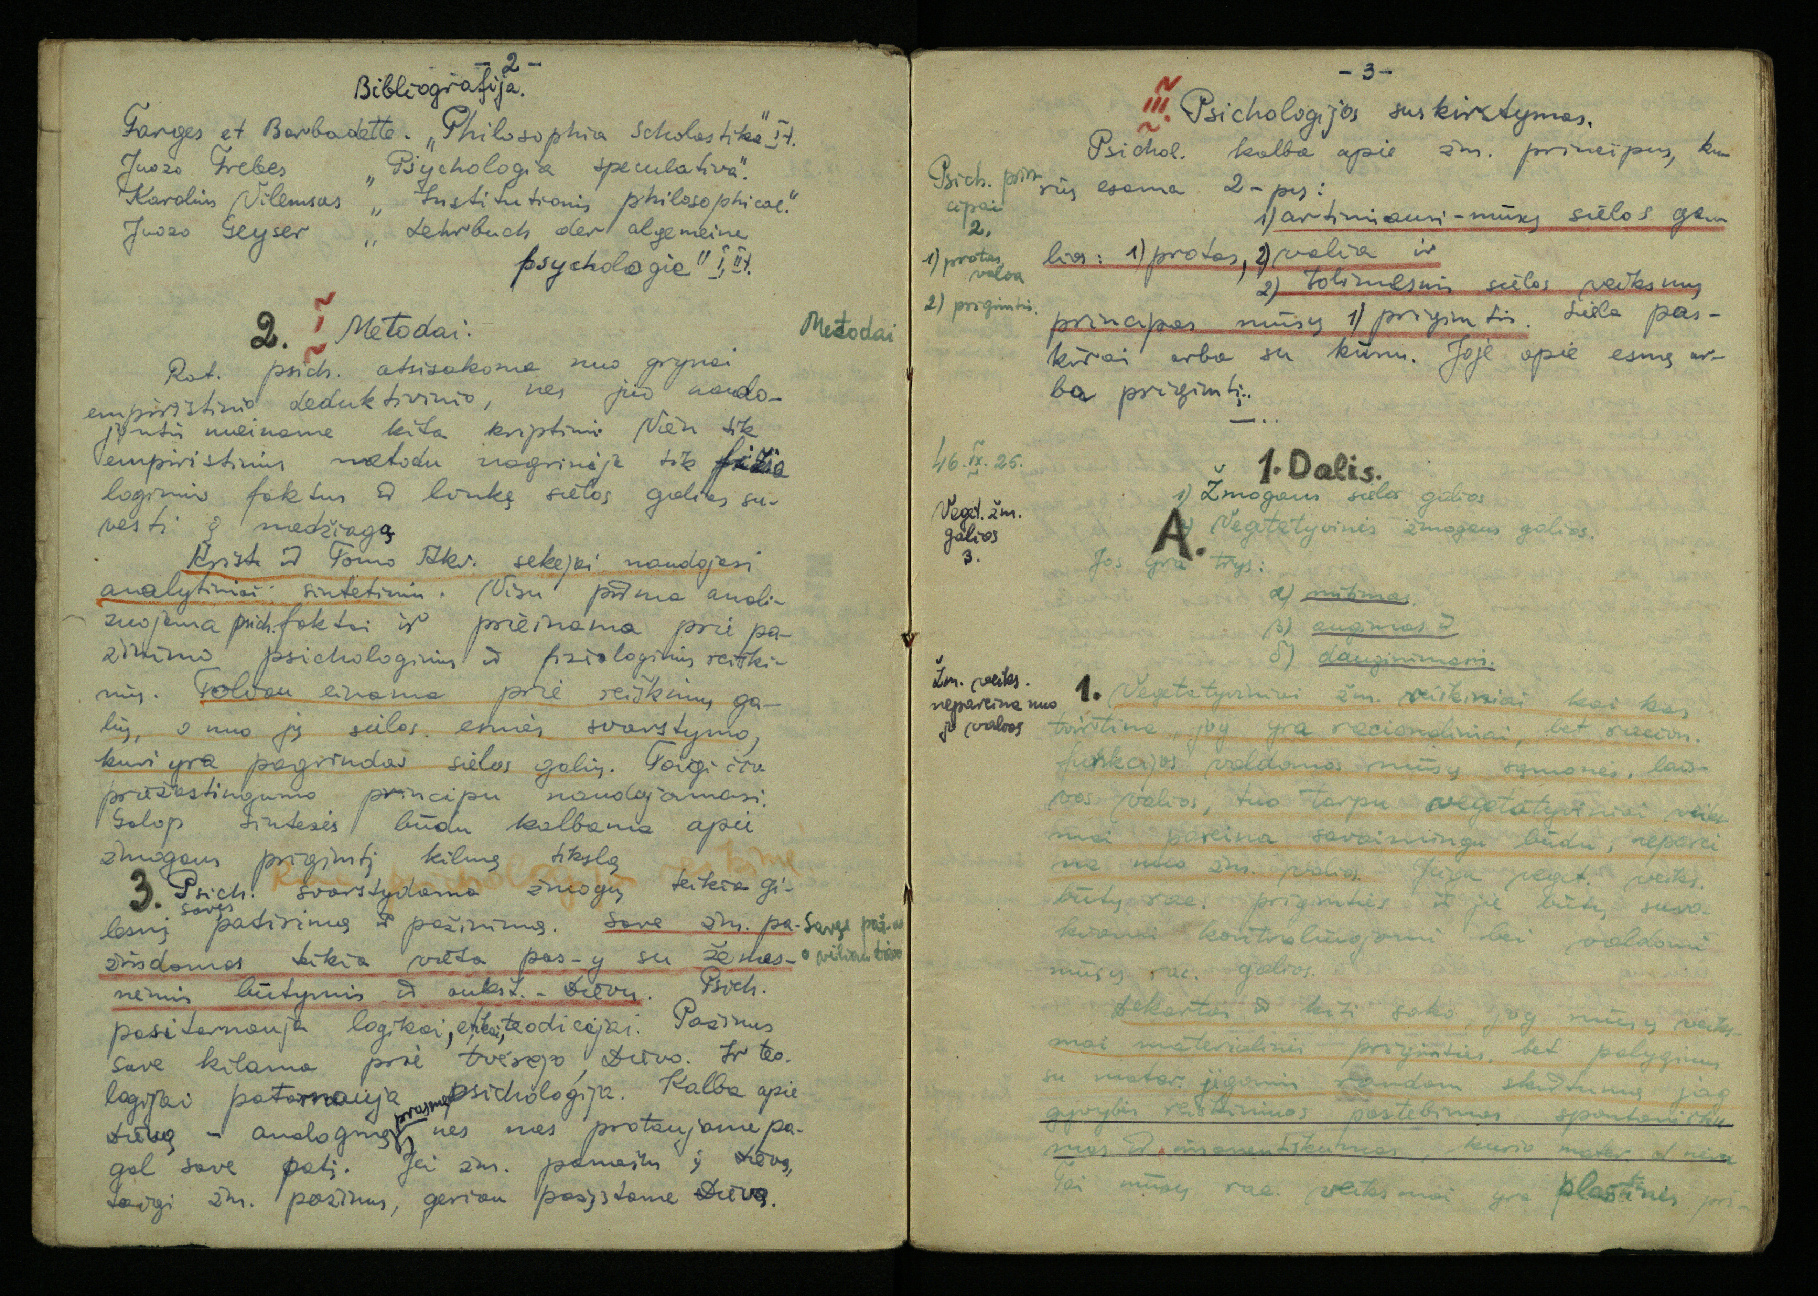 - 2 -
Bibliografija.
Farges et Barbadette. „Philosophia Scholastika" I t.
Juozo Frebes „Psychologia speculativa".
Karolius Vilemsas „Institutionis philosophicae."
Juozo Geyser „Lehrbuch der algemeine
psychologie" I, II t.
2. I Metodai.
Metodai
Rat. psich. atsisakoma nuo grynai
empiristinio deduktivinio, nes juo naudo-
jantis einame kita kriptimi. Vien tik
empiristiniu metodu nagrinėja tik fizio
loginius faktus ir linkę sielos galias su-
vesti į medžiagą
Krist. ir Tomo Akv. sekėjai naudojasi
analytiniai sintetiniu. Visu pirma anali-
zuojama psich. faktai ir prieinama prie pa-
žinimo psichologinių ir fiziologinių reiški-
nių. Toliau einama prie reiškinių ga-
lių, o nuo jų sielos esmės svarstymo,
kuri yra pagrindas sielos galių. Taigi čia
priežastingumo principu naudojamasi.
Galop sintezės būdu kalbama apie
žmogaus prigimtį kilmę tikslą
3. Psich. svarstydama žmogų teikia gi-
lesnį savęs patirimą ir pažinimą. Save žm. pa-
žindamas teikia vieta pas-y su žemes-
nėmis būtymis ir aukšt. - Dievu. Psich.
pasitarnauja logikai, etikai, teodicėjai. Pažinus
save kilama prie tvėrėjo, Dievo. Ir teo-
logijai patarnauja psichologija. Kalba apie
Dievą - analoginę prasme, nes mes protaujame pa-
gal save patį. Jei žm. panašus į Dievą,
taigi žm. pažinus, geriau pažįstame Dievą.
- 3 -
III. Psichologijos suskirstymas.
Psichol. kalba apie žm. principus, ku-
rių esama 2-jų:
Psich. prin-
cipai
2.
1) protas
valia
2) prigimtis.
1) artimiausi - mūsų sielos ga-
lios: 1) protas, 2) valia ir
2) tolimesnis sielos veiksmų
principas mūsų 1) prigimtis. Siela pas-
kirai arba su kūnu. Joje apie esmę ar-
ba prigimtį.
46.IX.25.
1. Dalis.
1) Žmogaus sielos galios
A. Vegetatyvinės žmogaus galios.
Veget. žm.
galios
3.
Jos yra trys:
α) mitimas
β) augimas ir
δ) dauginimasis.
Žm. veiks.
nepareina nuo
jo valios
1. Vegetatyviniai žm. veiksniai kai kas
tvirtina, jog yra racionaliniai, bet racion.
funkcijos valdomos mūsų sąmonės, lais-
vos valios, tuo tarpu vegetatyviniai veiks
mai pareina savaimingu būdu, neparei
na nuo žm. valios. Jeigu veget. veiks.
būtų rac. prigimties ir jie būtų suva-
kontroliuojami bei valdomi
mūsų rac. galios.
Dekartas ir kiti sako, jog mūsų veiks-
mai materialinės prigimties, bet palyginus
su mater. jėgomis randam skirtumą, jog
gyvybės reiškiniuos pastebimas spontanišku
mas ir imanentiškumas, kurio mater. d nėra
Tai mūsų rac. veiksmai yra plastinės pri-